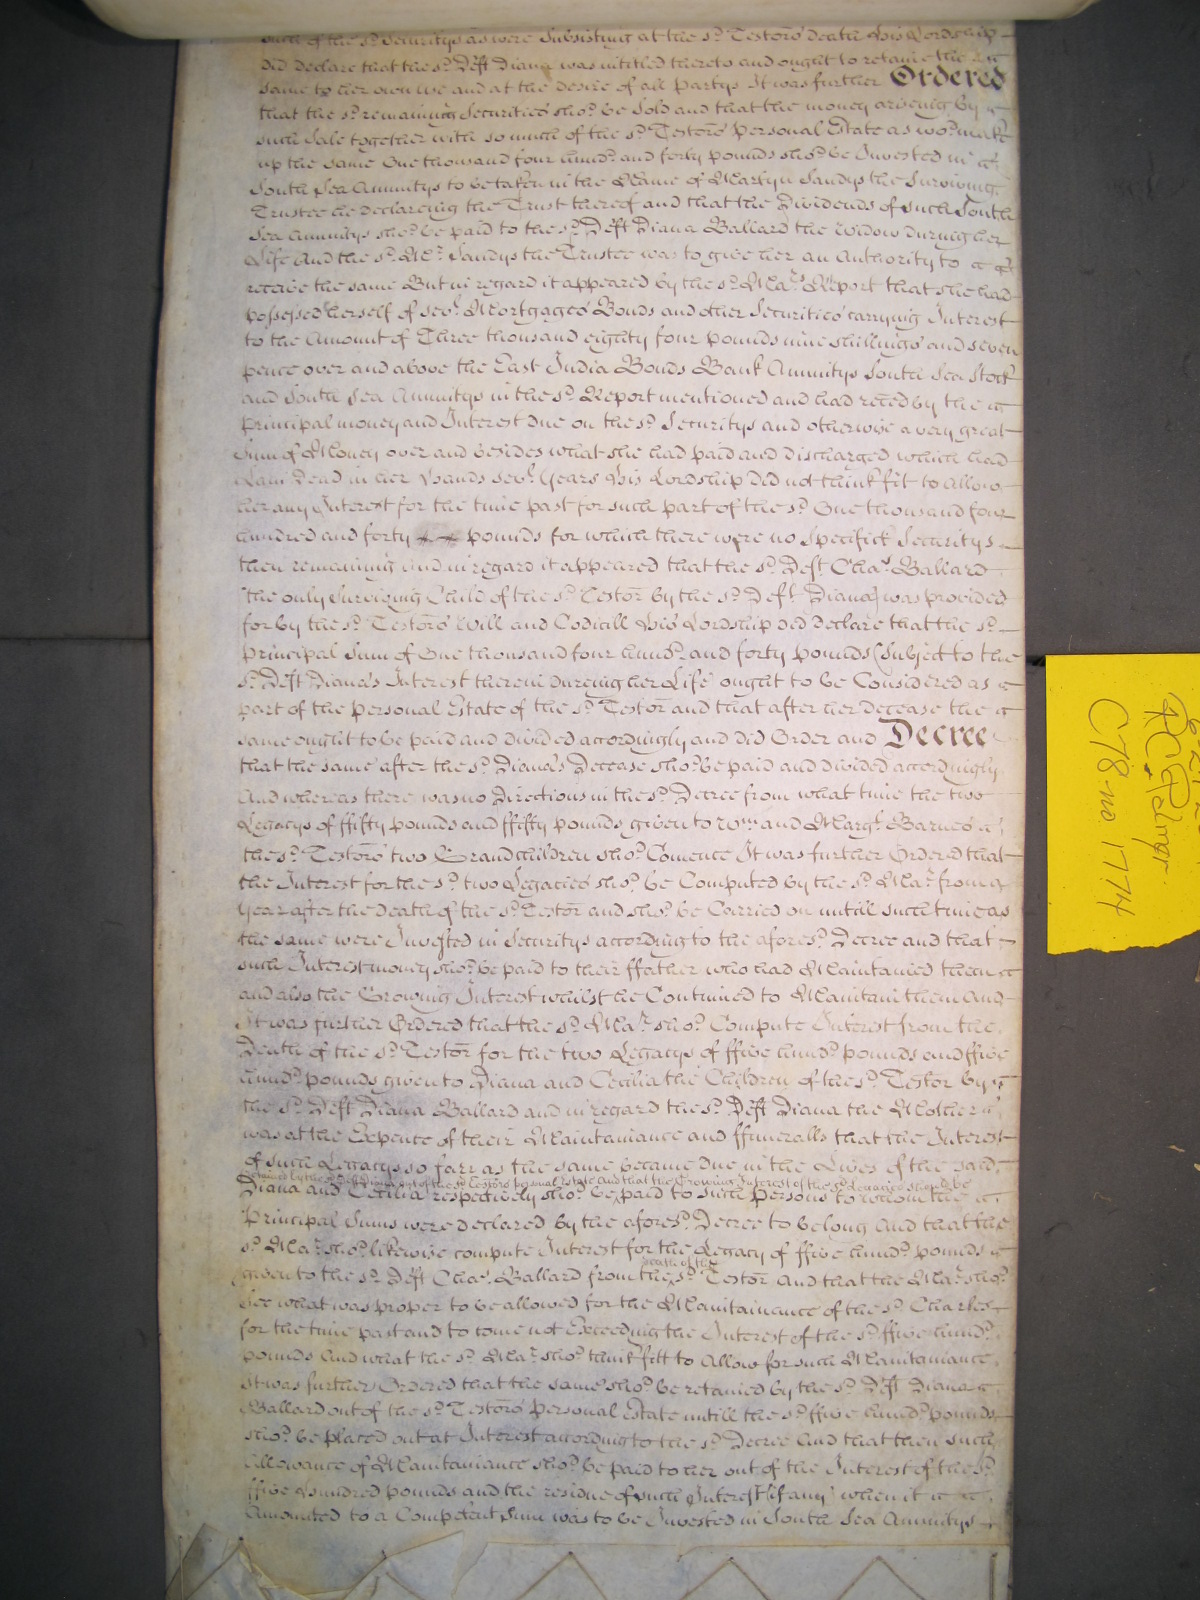 such of the sd. Securitys as were Subsisting at the sd. Testors death His Lordship
did declare that the sd. Deft Diana was intitled thereto and ought to retaine the
same to her own use and at the desire of all Partys It was further Ordered
that the sd. remaining Securities shod. be Sold and that the money ariseing by
such Sale together with so much of the sd. Testors Personal Estate as wod. make
up the same One thousand four hund. and forty pounds shod. be Invested in
South Sea Annuitys to be taken in the Name of Martyn Sandys the Surviving
Trustee he declareing the Trust thereof and that the Dividends of such South
Sea Annuitys shod. be paid to the sd. Deft Diana Ballard the Widow dureing her
Life And the sd. Mr. Sandys the Trustee was to give her an Authority to
receive the same But in regard it appeared by the sd. Mars. Report that she had
possessed herself of sevl. Mortgages Bonds and other Securities carrying Interest
to the Amount of Three thousand eighty four pounds nine shillings and seven
pence over and above the East India Bonds Bank Annuitys South Sea Stock
and South Sea Annuitys in the sd. Report mentioned and had reced by the
Principal money and Interest due on the sd. Securitys and otherwise a very great
Sum of Money over and besides what she had paid and discharged which had
Lain Dead in her Hands sevl. Years His Lordship did not think fit to Allow
her any Interest for the time past for such part of the sd. One thousand four
hundred and forty pounds for which there were no Specifick Securitys
then remaining And in regard it appeared that the sd. Deft Chas. Ballard
the only Surviving Child of the sd. Testor by the sd. Deft Diana was provided
for by the sd. Testors Will and Codicill His Lordship did declare that the sd.
Principal Sum of One thousand four hund. and forty Pounds (Subject to the
sd. Deft Diana's Interest therein dureing her Life ought to be Considered as
part of the Personal Estate of the sd. Testor and that after her decease the
same ought to be paid and divided accordingly and did Order and Decree
that the same after the sd. Diana's Decease shod. be paid and divided accordingly
And whereas there was no Directions in the sd. Decree from what time the two
Legacys of ffifty pounds and ffifty pounds given to Wm. and Margt. Barnes
the sd. Testors two Grandchildren shod. Comence It was further Ordered that
the Interest for the sd. two Legacies shod. be Computed by the sd. Mar. from a
Year after the death of the sd. Testor and shod. be Carried on untill such time as
the same were Invested in Securitys according to the aforesd. Decree and that
such Interest money shod. be paid to their ffather who had Maintained them
and also the Growing Interest whilst he Continued to Maintain them And
It was further Ordered that the sd. Mar. shod. Compute Interest from the
Death of the sd. Testor for the two Legacys of ffive hund. pounds and ffive
hund. pounds given to Diana and Cecilia the Children of the sd. Testor by
the sd. Deft Diana Ballard and in regard the sd. Deft Diana the Mother
was at the Expence of their Maintaniance and ffuneralls that the Interest
of such Legacys so farr as the same became due in the Lives of the said
retained by the sd. Deft Diana out of the sd. Testors personal Estate and that the Growing Interest of the sd. Legacies should be
Diana and Cecilia respectively shod. be paid to such Persons to whom the
Principal Sums were declared by the aforesd. Decree to belong And that the
sd. Mar. shod. likewise compute Interest for the Legacy of ffive hund. pounds
death of the
given to the sd. Deft Chas. Ballard from the sd. Testor And that the Mar. shod.
see what was proper to be allowed for the Maintainance of the sd. Charles
for the time past and to come not Exceeding the Interest of the sd. ffive hund.
pounds And what the sd. Mar. shod. think fitt to Allow for such Maintaniance
It was further Ordered that the same shod. be retained by the sd. Deft Diana
Ballard out of the sd. Testors Personal Estate untill the sd. ffive hund. pounds
shod. be placed out at Interest according to the sd. Decree And that then such
Allowance of Maintaniance shod. be paid to her out of the Interest of the sd.
ffive Hundred pounds and the residue of such Interest (if any) when it
Amounted to a Competent Sum was to be Invested in South Sea Annuitys
C78 no 1774